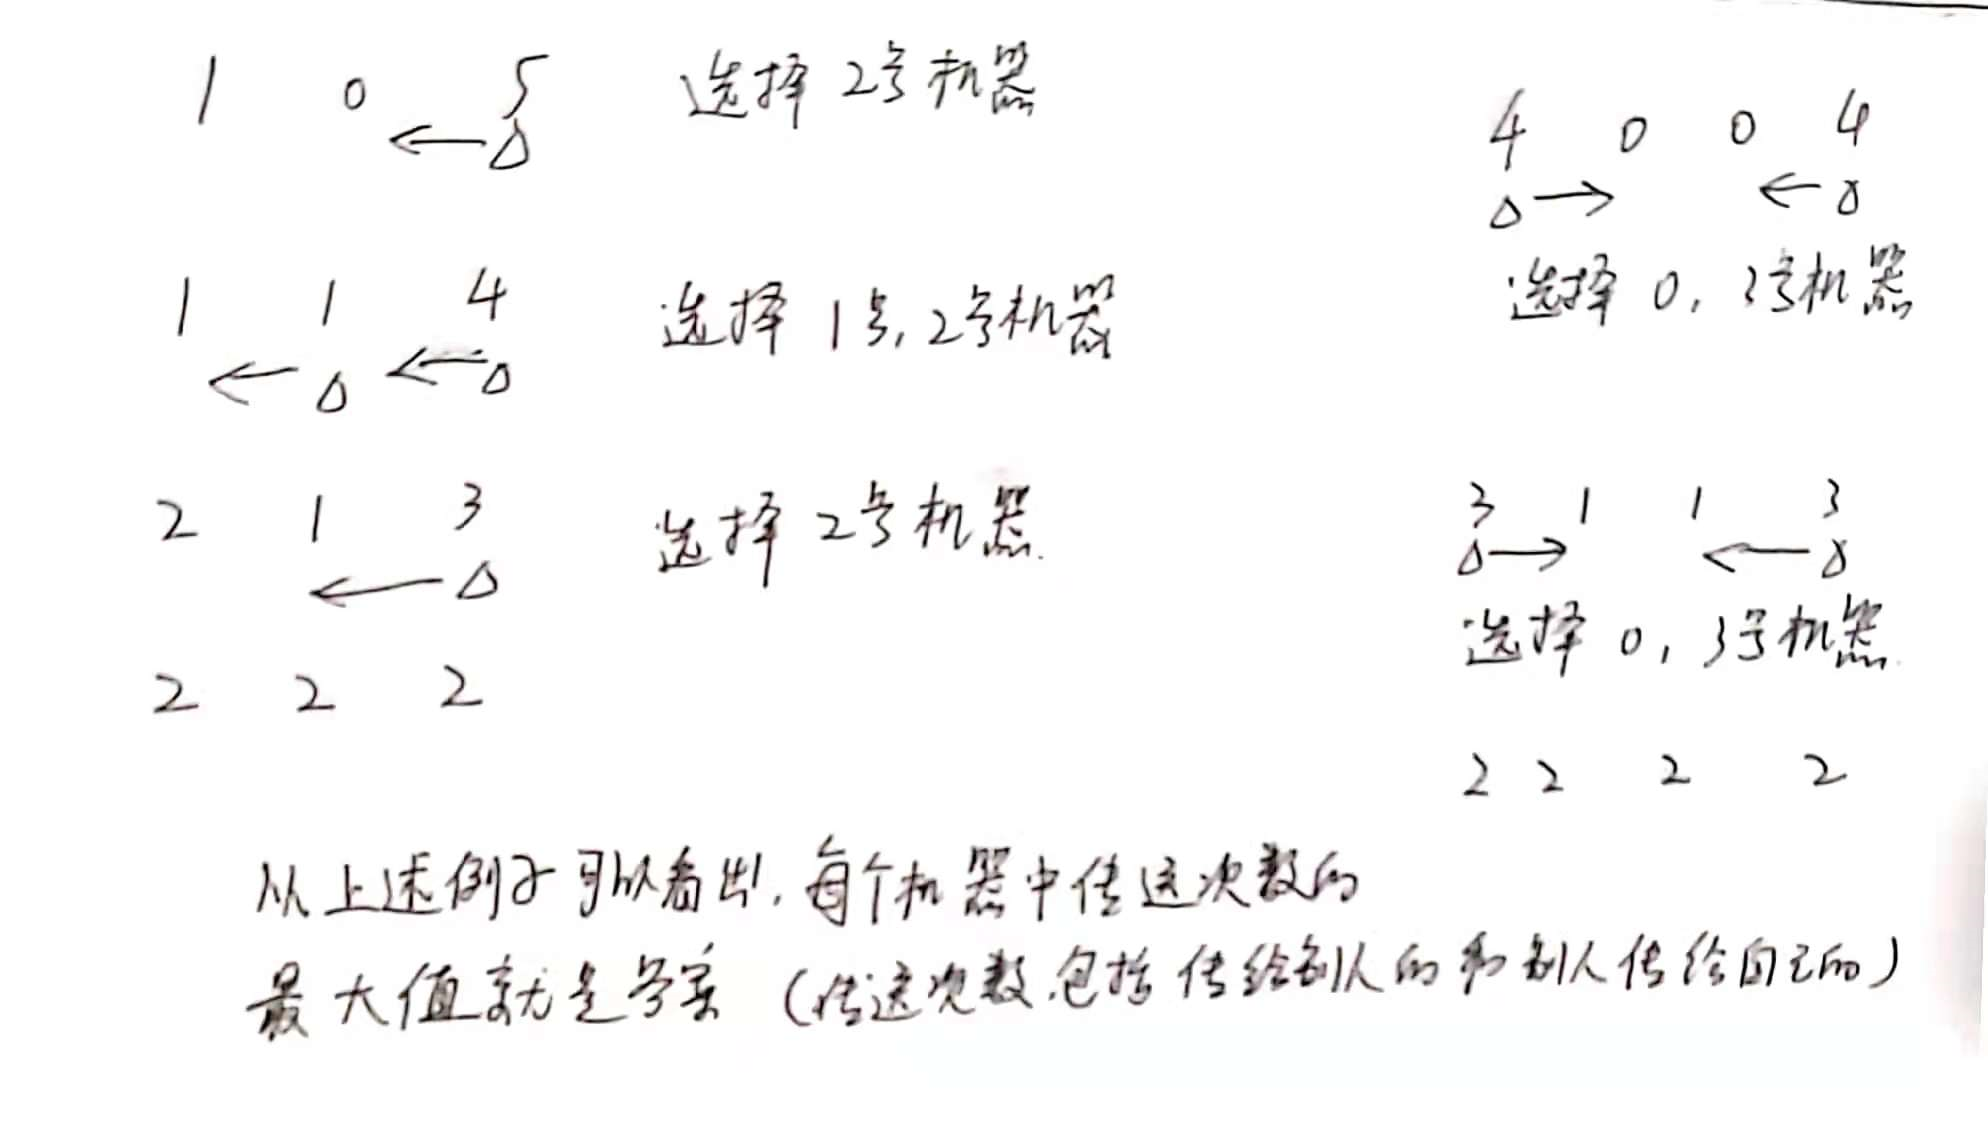 1 0 5 选择 2号机器
1 1 4 选择 1号,2号机器
2 1 3 选择 2号机器.
2 2 2
4 0 0 4
选择 0, 3号机器
3 1 1 3
选择 0, 3号机器.
2 2 2 2
从上述例子可以看出,每个机器中传送次数的
最大值就是答案 (传送次数包括传给别人的和别人传给自己的)